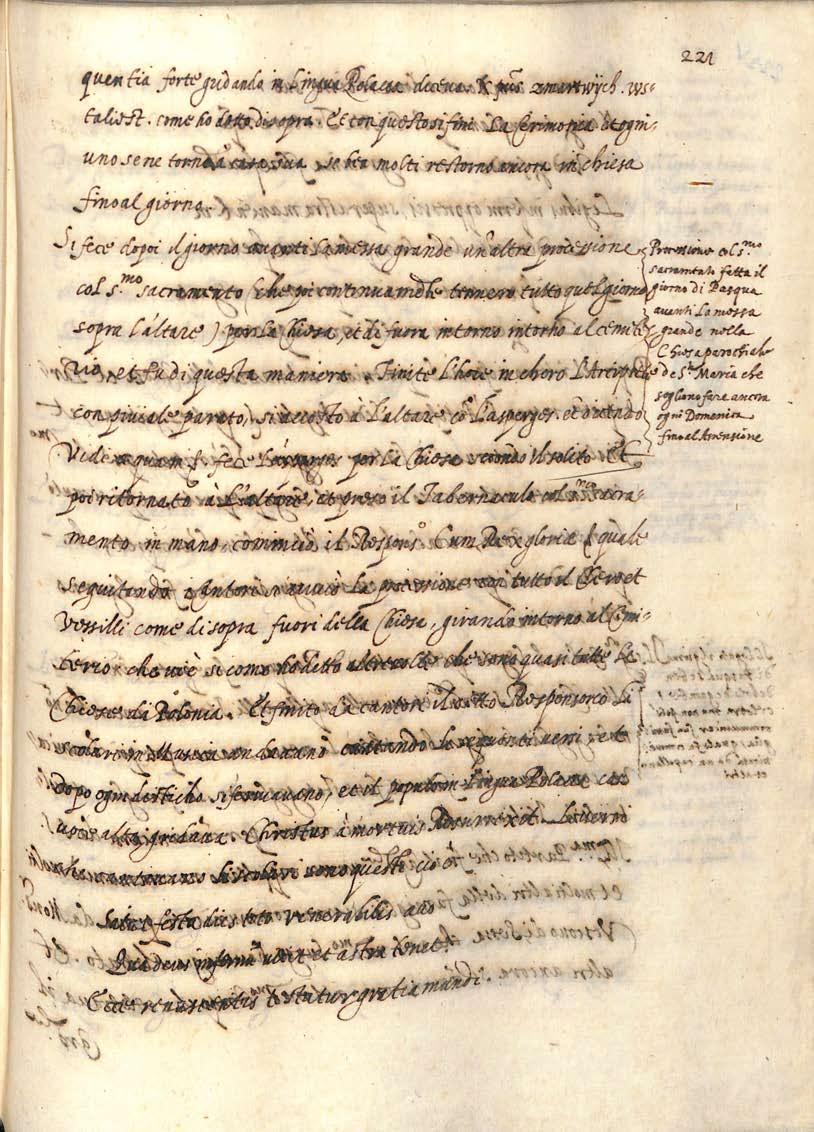 221
quentia forte gridando in lingua Polacca diceua. X pũs zmartwÿch. ws=
talisst. come ho detto di sopra. Et con questo si finì la Cerimonia et ogni=
uno se ne tornò à casa sua se ben molti restorno ancora in chiesa
fino al giorno.
Si fece dopoi il giorno auanti la messa grande un'altra processione
col s.mo sacramento (che poi continuamente tennero tutto quel giorno
sopra l'altare) per la Chiesa, et di fuora intorno intorno al cemite
rio, et fu di questa maniera. Finite l'hore in choro l'Arciprete
con piuiale parato, si accostò à l'altare cõ l'asperges. et dicendo
Vidi aquam &. fece l'asperges per la Chiesa secondo il solito. Et
poi ritornato à l'altare, et preso il Tabernaculo col s.mo sacra=
mento in mano cominciò il Respons.o Cum Rex gloriæ il quale
seguitando i Cantori si auuiò la processione con tutto il Clero et
Vessilli come di sopra fuori della Chiesa, girando intorno al Cimi=
terio che vi è si come ho detto altre volte che sono quasi tutte le
Chiese di Polonia. Et finito da cantore il detto Responsorio li
scolari in Musica andauano cantando li seguenti uersi, et
dopo ogni disticho si fermauano, et il populo in lingua Polacca con
uoce alta gridaua. Christus à mortuis Resurrexit. Li uersi
che cantauano li scolari sono questi cioè
Salue festa dies toto venerabilis æuo
Qua deus infernũ uicit et astra tenet.
Ecce renascentis testatur gratia mundi.
Processione col s.mo
sacramẽto fatta il
giorno di Pasqua
auanti la messa
grande nella
Chiesa parochiale
de S.ta Maria che
sogliono fare ancora
ogni Domenica
fino al Ascensione